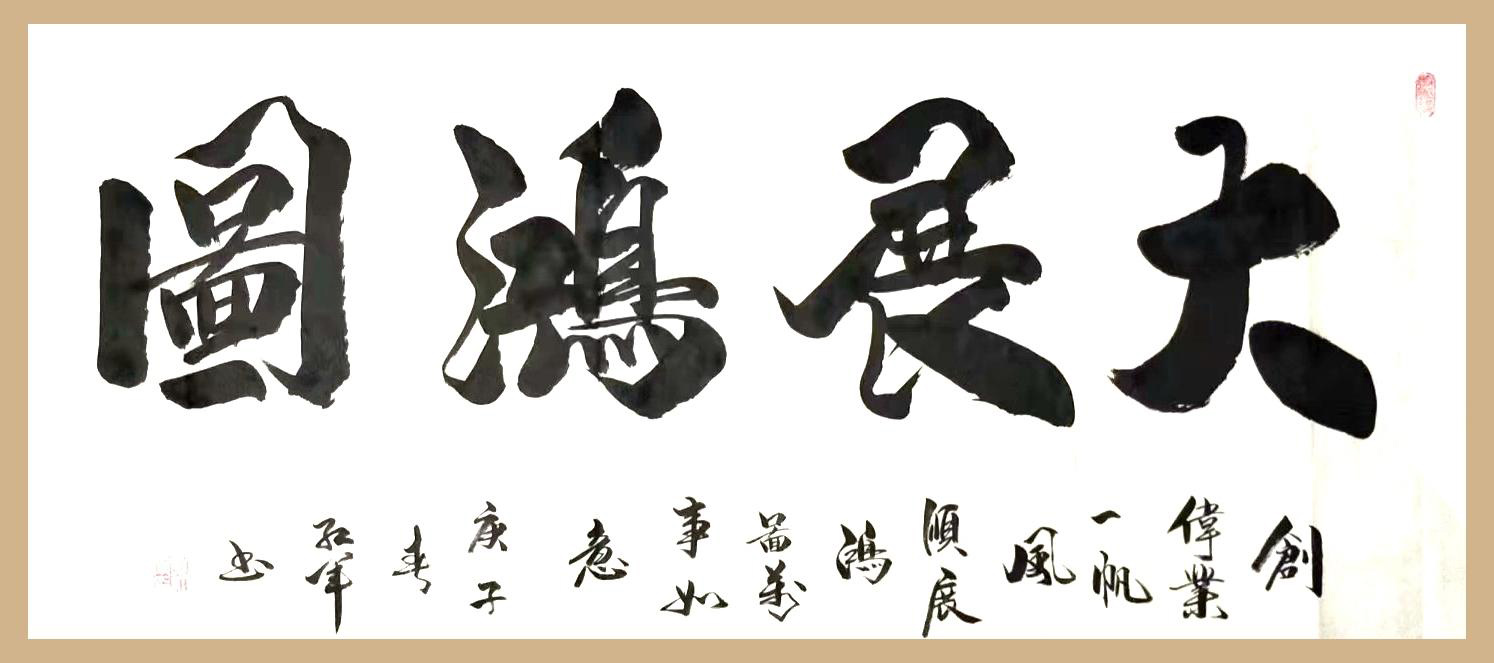 大展鴻圖
創偉業一帆風順展鴻啚萬事如意庚子春紅軍书